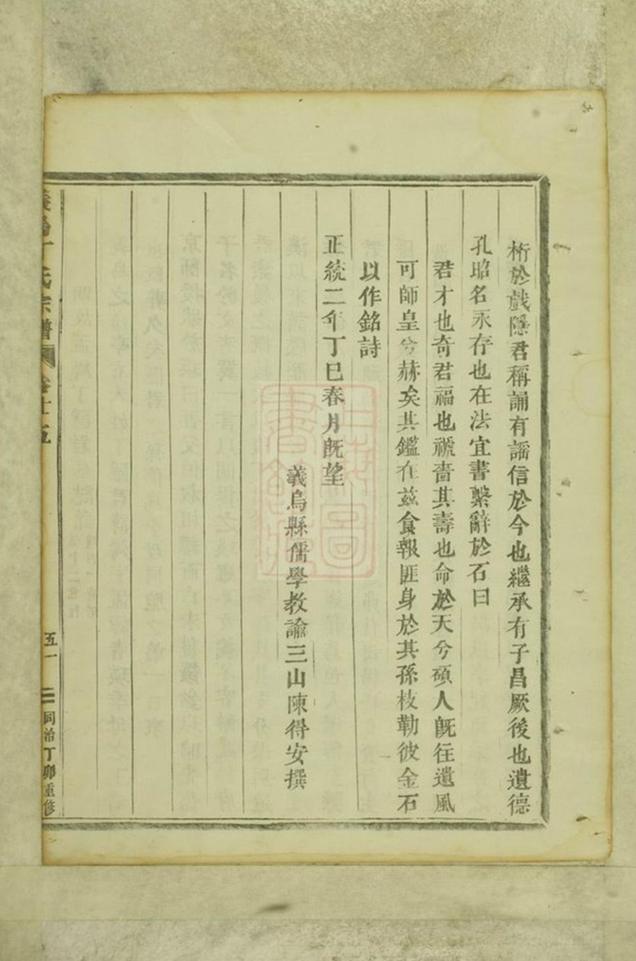 桁於戲隱君稱誦有謡信於今也繼承有子昌厥後也遺德
孔昭名永存也在法宜書繫辭於石曰
君才也奇君福也禠啬其壽也命於天兮碩人旣往遺風
可師皇兮赫矣其鑑在兹食報匪身於其孫枝勒彼金石
以作銘詩
正統二年丁巳春月旣望
義烏縣儒學教諭三山陳得安撰
義烏丁氏宗譜 卷十五
五一
同治丁卯重修